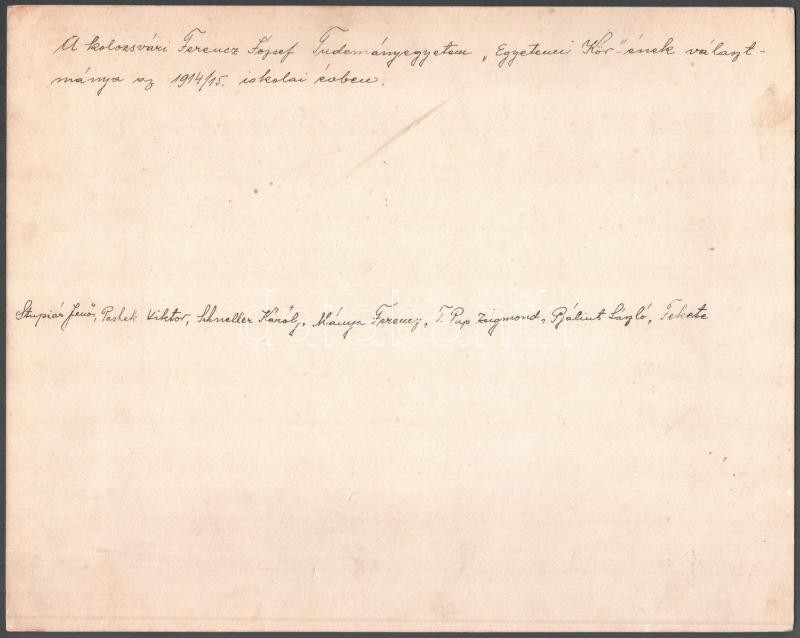 A kolozsvári Ferencz József Tudományegyetem „Egyetemi Kör"-ének választ-
mánya az 1914/15. iskolai évben.
Stupiár Jenő, Pashek Viktor, Schneller Károly, Mánya Ferencz, T. Pap Zsigmond, Bálint László, Fekete